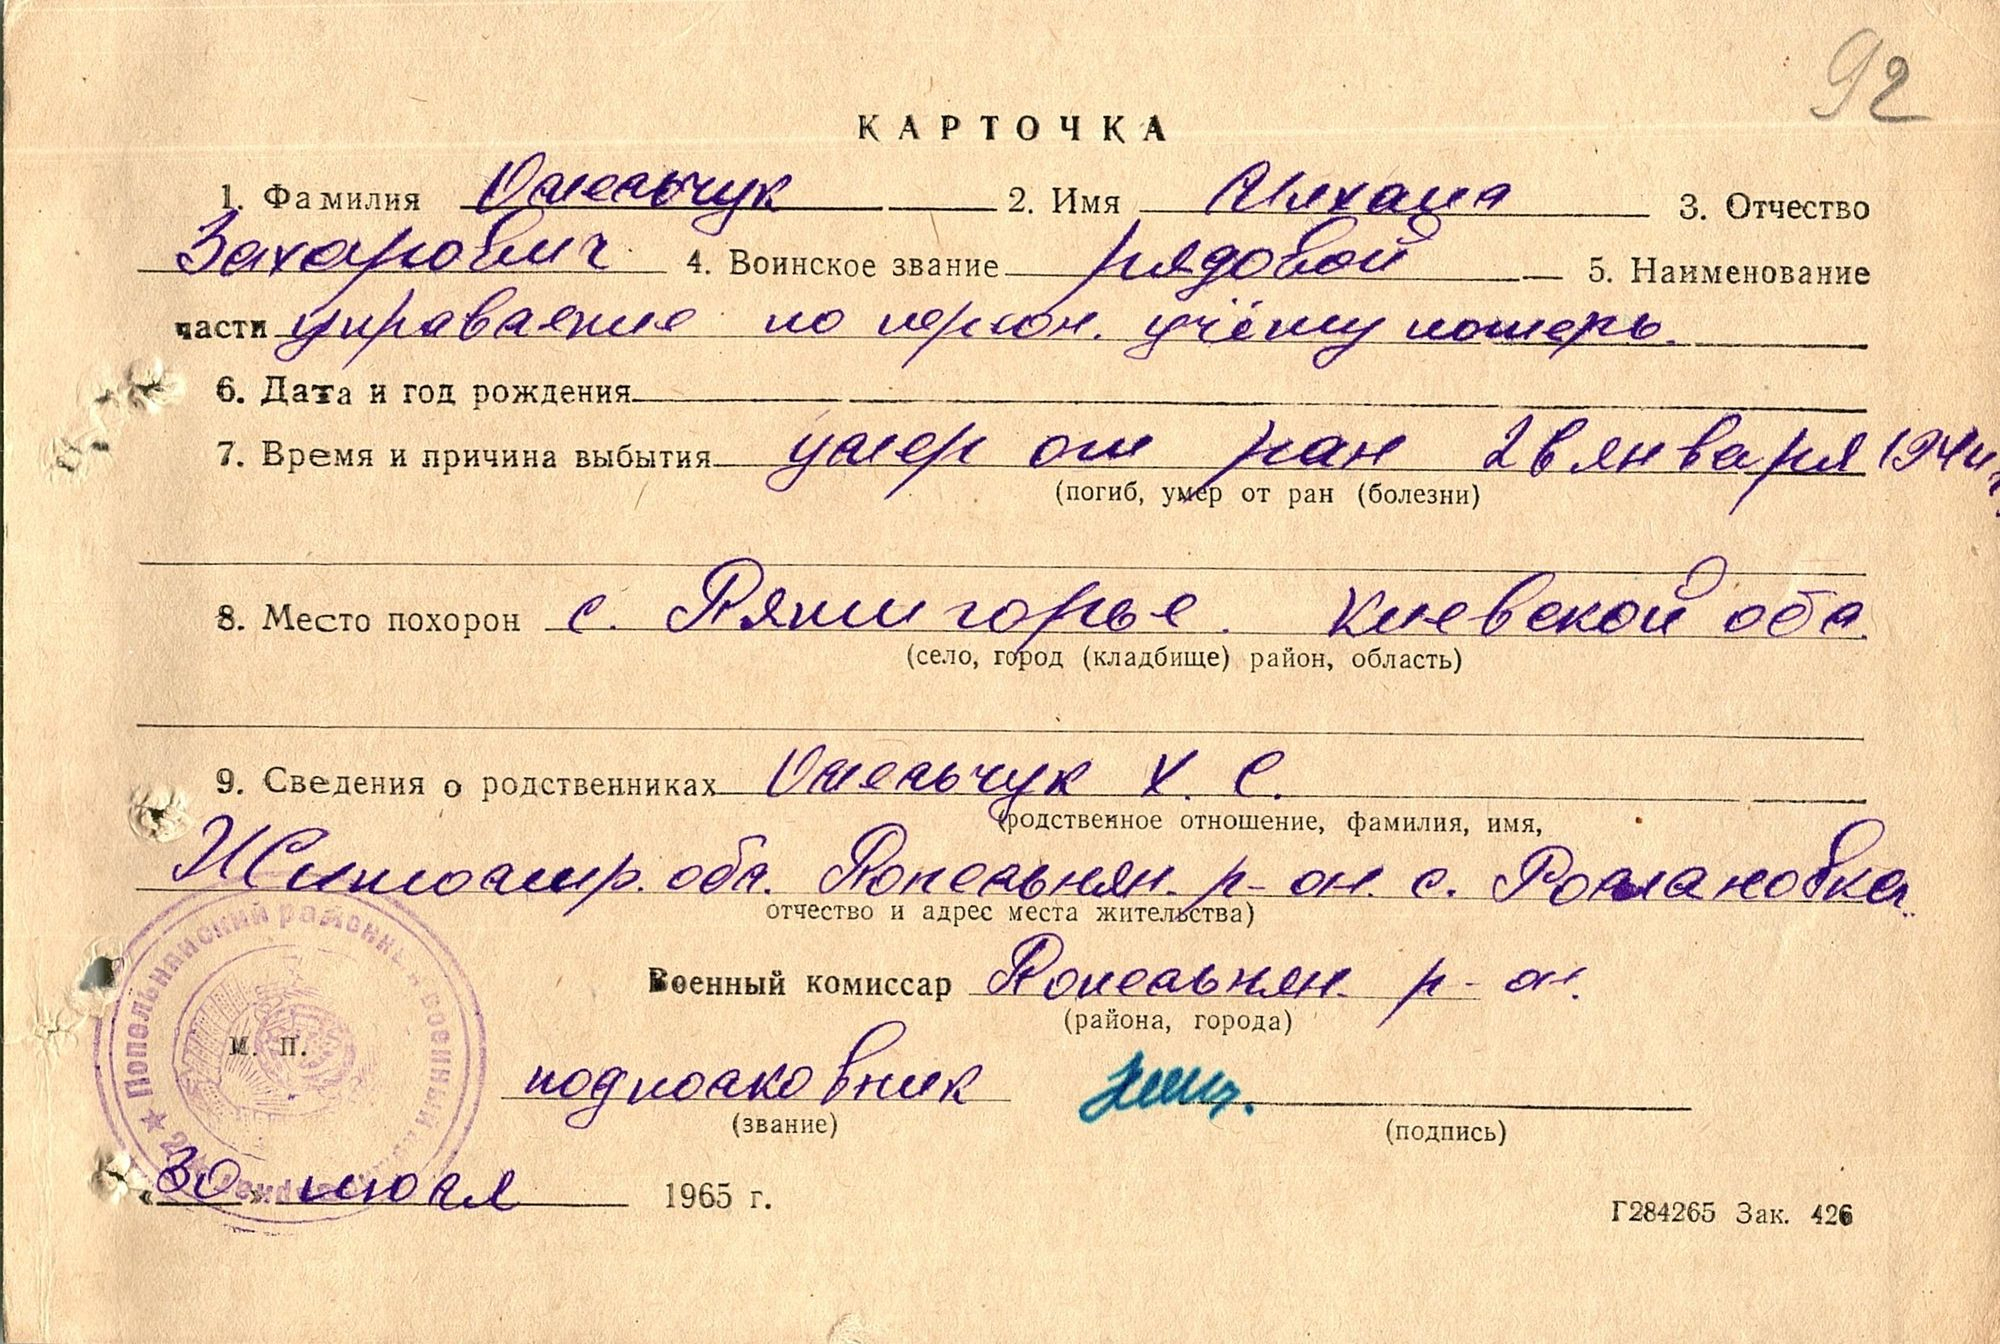 92
КАРТОЧКА
1. Фамилия Омельчук 2. Имя Михаил 3. Отчество
Захарович 4. Воинское звание рядовой 5. Наименование
части управление по персон. учёту потерь.
6. Дата и год рождения
7. Время и причина выбытия умер от ран 28 января 1944 г.
(погиб, умер от ран (болезни)
8. Место похорон с. Пятигорье. Киевской обл.
(село, город (кладбище) район, область)
9. Сведения о родственниках Омельчук Х. С.
(родственное отношение, фамилия, имя,
Житомир. обл. Попельнян. р-он. с. Романовка.
отчество и адрес места жительства)
Военный комиссар Попельнян. р-он.
(района, города)
М. П.
Попольнянский районный военный
подполковник
(звание) (подпись)
«30» июля 1965 г.
Г284265 Зак. 426